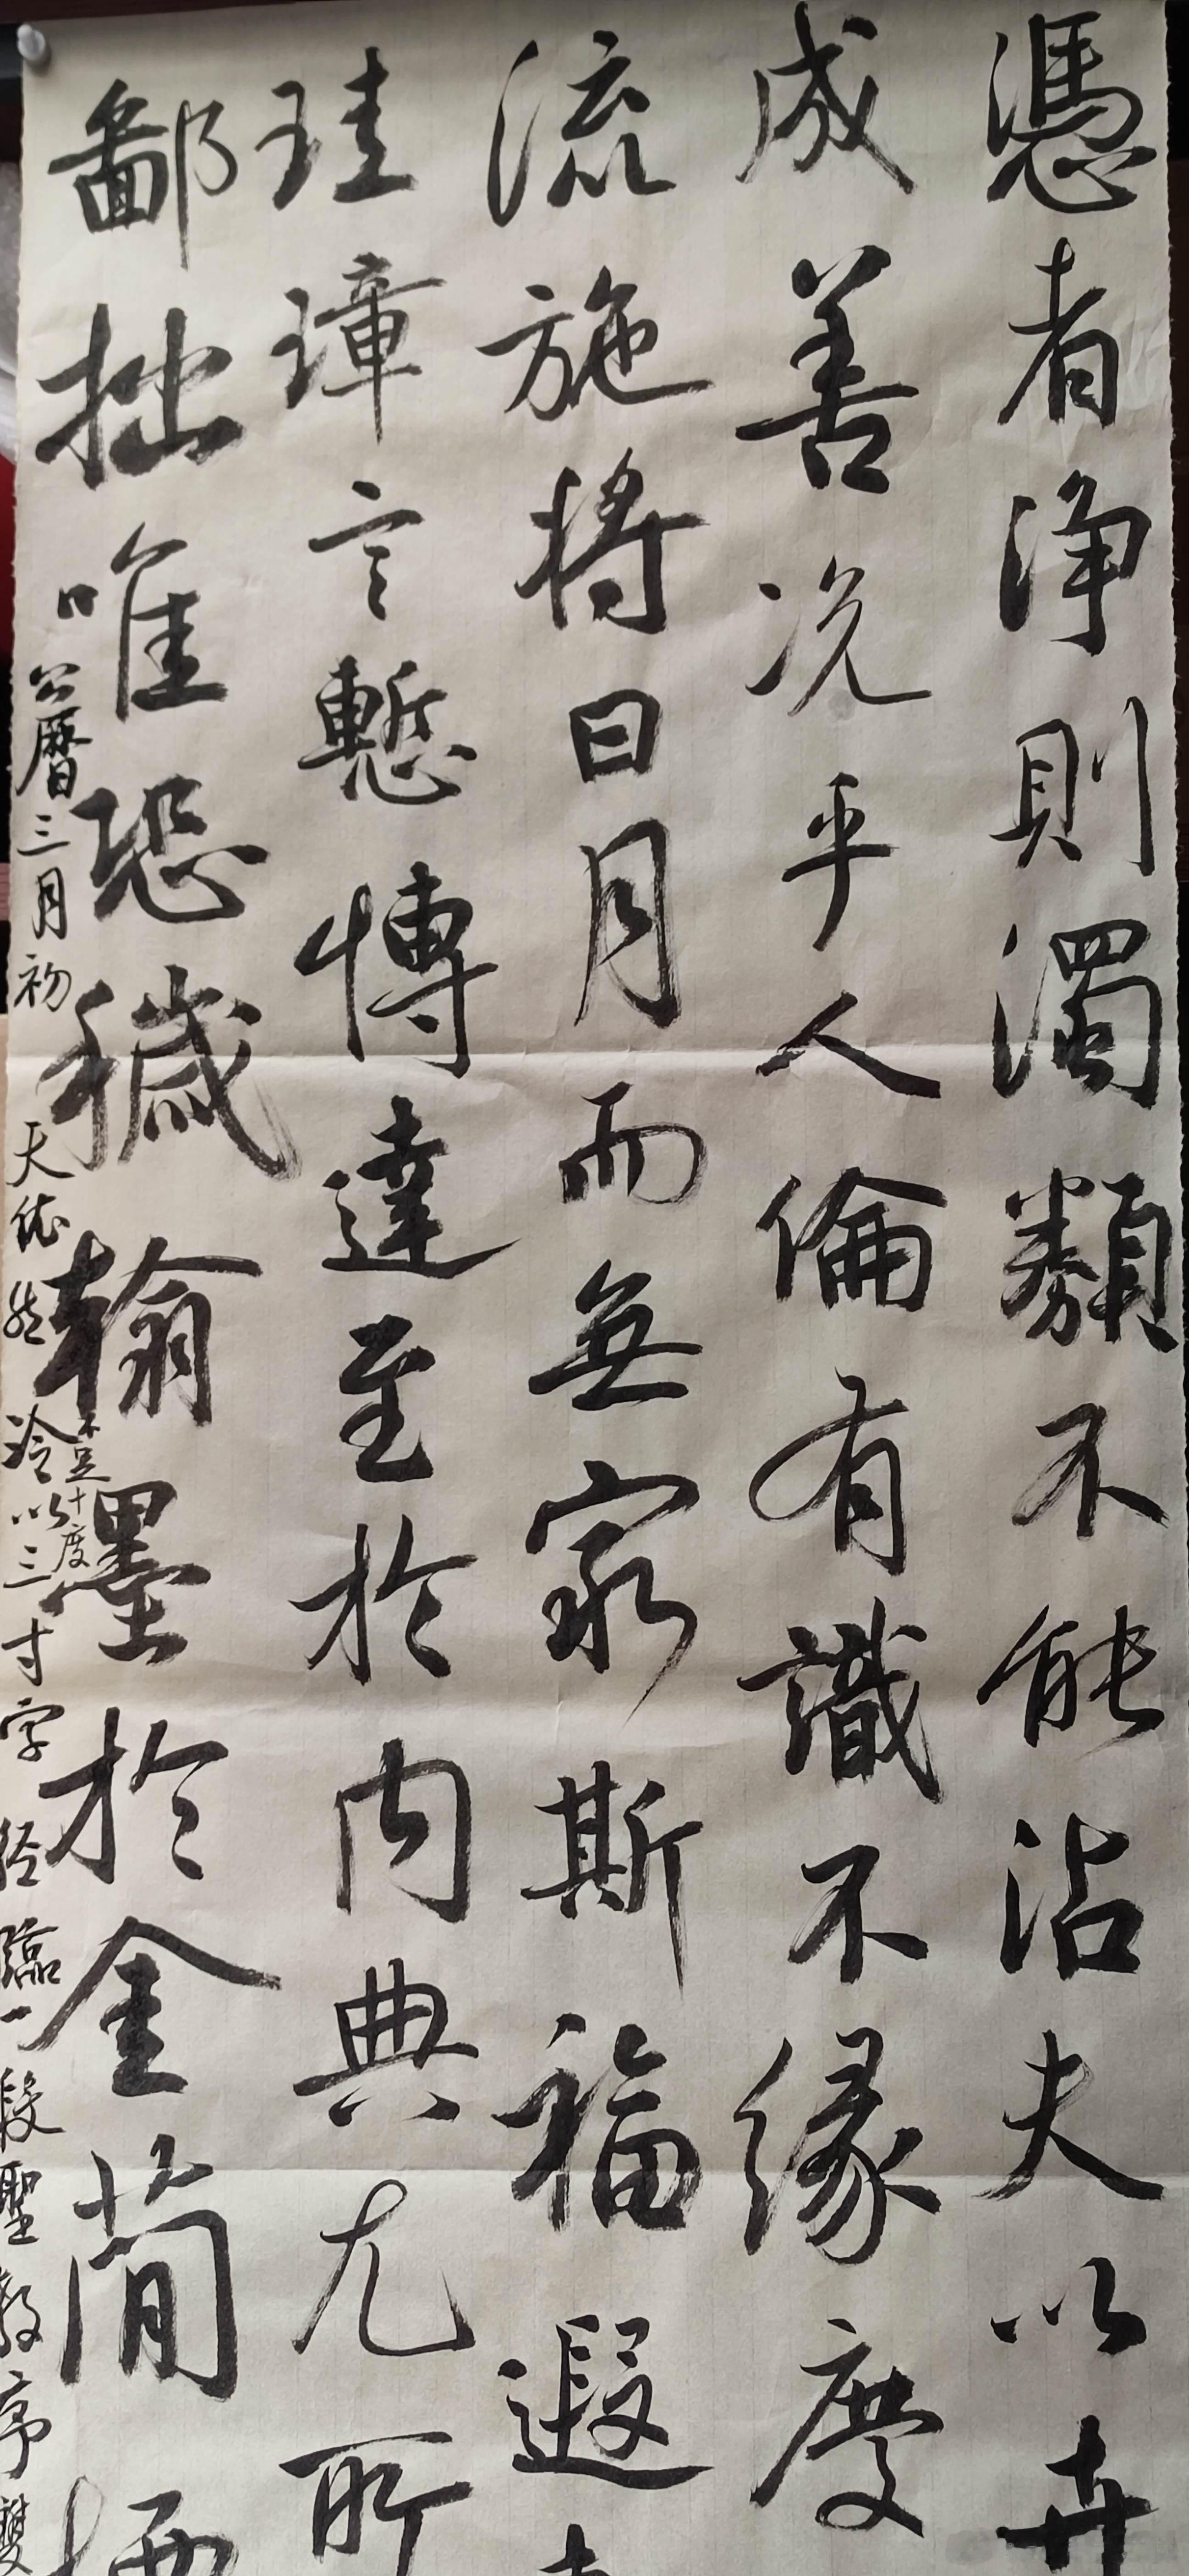 憑者淨則濁類不能沾夫以卉
成善況乎人倫有識不緣慶
流施將日月而無窮斯福遐
珪璋言慙博達至於內典尤所
鄙拙唯恐穢翰墨於金簡
公曆三月初 天依然冷 不足十度 以三寸字 臨一段聖教序